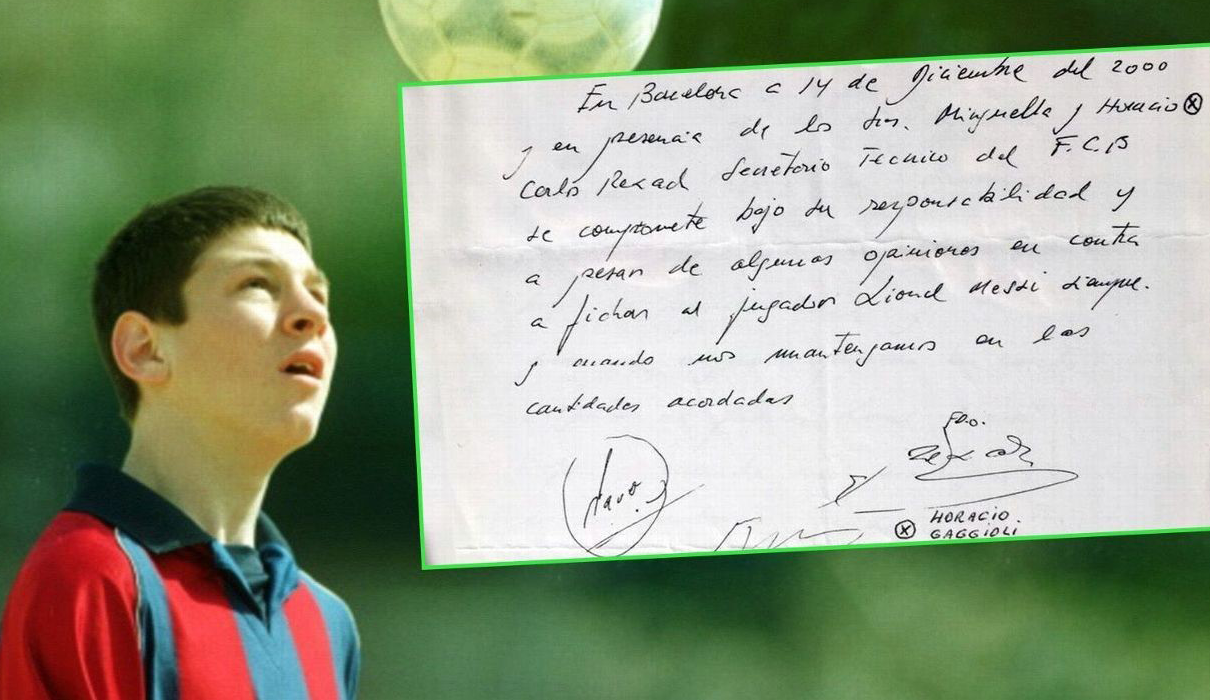 En Barcelona a 14 de Diciembre del 2000
y en presencia de los Sres. Minguella y Horacio ⓧ
Carlos Rexach Secretario Tecnico del F.C.B
se compromete bajo su responsabilidad y
a pesar de algunas opiniones en contra
a fichar al jugador Lionel Messi siempre.
y cuando nos mantengamos en las
cantidades acordadas
FDO.
ⓧ HORACIO
GAGGIOLI.